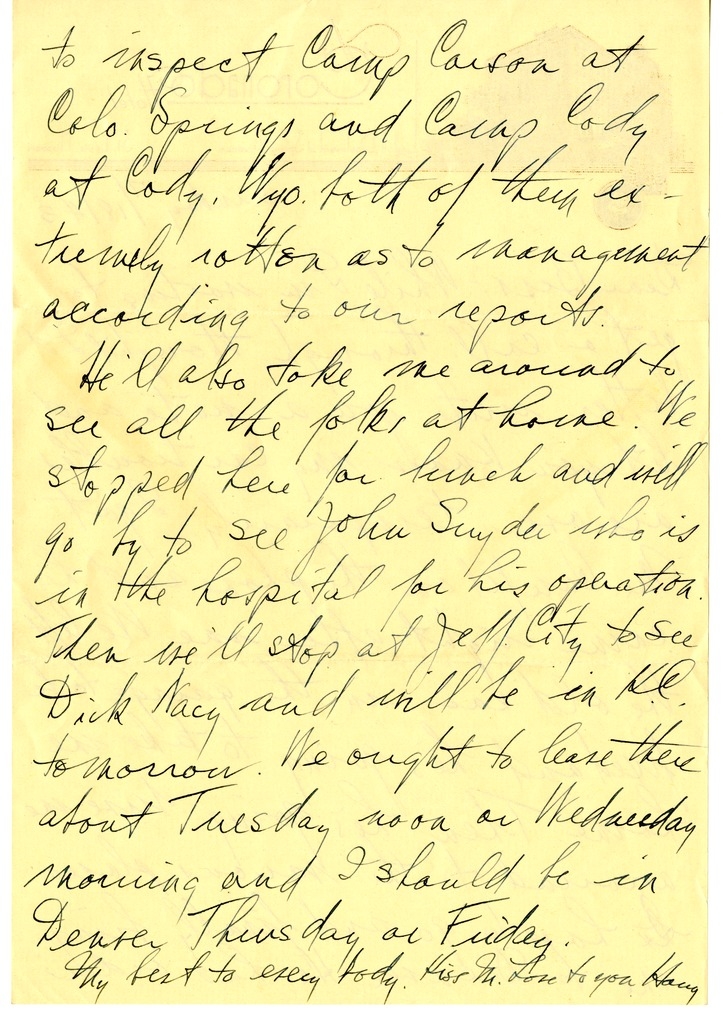 to inspect Camp Carson at
Colo. Springs and Camp Cody
at Cody, Wyo. both of them ex-
tremely rotten as to management
according to our reports.
He'll also take me around to
see all the folks at home. We
stopped here for lunch and will
go by to see John Snyder who is
in the hospital for his operation.
Then we'll stop at Jeff. City to see
Dick Nacy and will be in K.C.
tomorrow. We ought to leave there
about Tuesday noon or Wednesday
morning and I should be in
Denver Thursday or Friday.
My best to every body. Kiss M. Love to you Harry